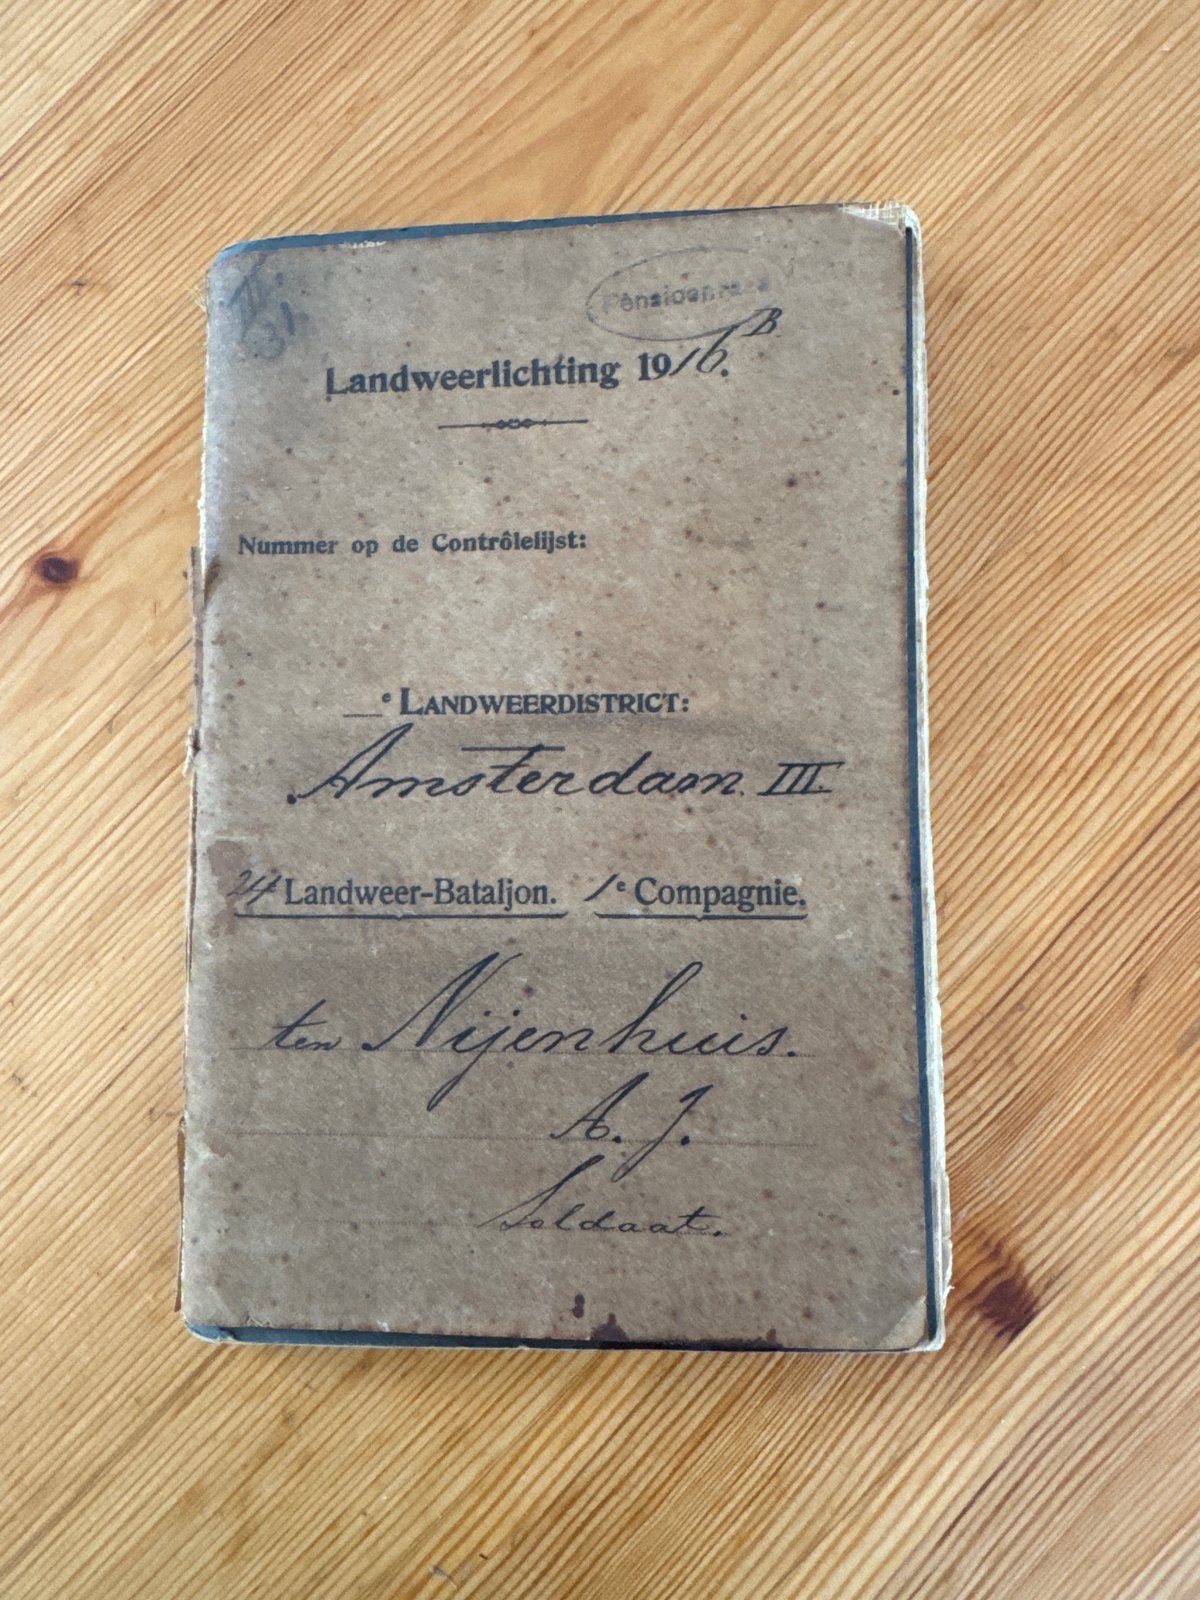 II.
31.
Landweerlichting 1916.B
Nummer op de Contrôlelijst:
e LANDWEERDISTRICT:
Amsterdam. III.
24e Landweer-Bataljon. 1e Compagnie.
ten Nijenhuis.
A. J.
Soldaat.